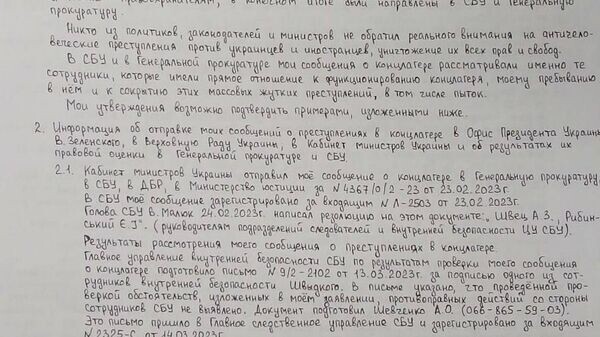 правоохранителям, в конечном итоге были направлены в СБУ и Генеральную
прокуратуру.
Никто из политиков, законодателей и министров не обратил реального внимания на античело-
веческие преступления против украинцев и иностранцев, уничтожение их всех прав и свобод.
В СБУ и в Генеральной прокуратуре мои сообщения о концлагере рассматривали именно те
сотрудники, которые имели прямое отношение к функционированию концлагеря, моему пребыванию
в нём и к сокрытию этих массовых жутких преступлений, в том числе пыток.
Мои утверждения возможно подтвердить примерами, изложенными ниже.
2. Информация об отправке моих сообщений о преступлениях в концлагере в Офис Президента Украины
В. Зеленского, в Верховную Раду Украины, в Кабинет министров Украины и об результатах их
правовой оценки в Генеральной прокуратуре и СБУ.
2.1. Кабинет министров Украины отправил моё сообщение о концлагере в Генеральную прокуратуру,
в СБУ, в ДБР, в Министерство юстиции за №4367/0/2-23 от 23.02.2023г.
В СБУ моё сообщение зарегистрировано за входящим № Л-2503 от 23.02.2023г.
Голова СБУ В. Малюк 24.02.2023г. написал резолюцию на этом документе: „Швец А.З., Рибин-
ський Є.Й". (руководителям подразделений следователей и внутренней безопасности ЦУ СБУ).
Результаты рассмотрения моего сообщения о преступлениях в концлагере.
Главное управление внутренней безопасности СБУ по результатам проверки моего сообщения
о концлагере подготовило письмо №9/2-2102 от 13.03.2023г. за подписью одного из сот-
рудников внутренней безопасности Швидкого. В письме указано, что „проведённой про-
веркой обстоятельств, изложенных в моём заявлении, противоправных действий со стороны
сотрудников СБУ не выявлено. Документ подготовил Шевченко А.О. (066-865-59-03).
Это письмо пришло в Главное следственное управление СБУ и зарегистрировано за входящим
№2325-С от 14.03.2023г.